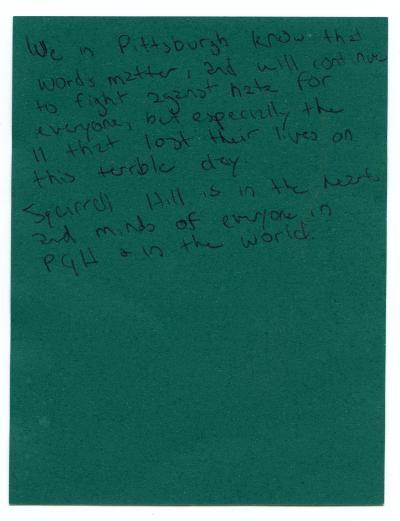 We in Pittsburgh know that
words matter, and will continue
to fight against hate for
everyone, but especially the
11 that lost their lives on
this terrible day
Squirrell Hill is in the hearts
and minds of everyone in
PGH + in the world.